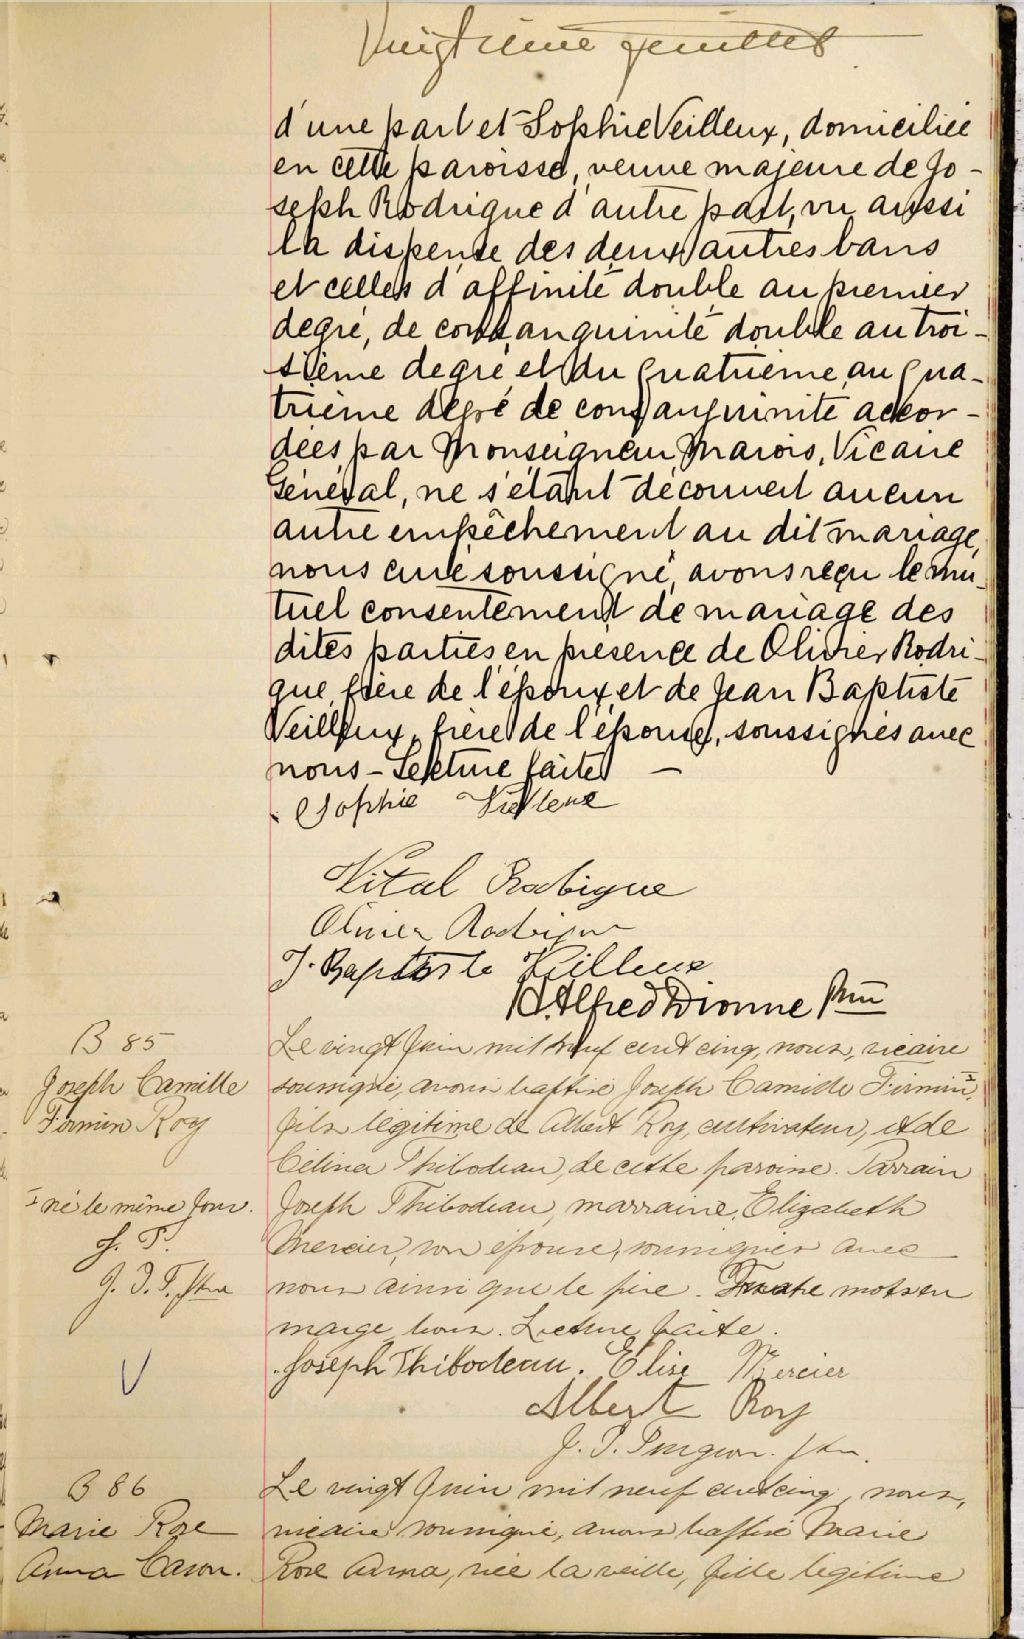 Vingtième feuillet
d'une part et Sophie Veilleux, domiciliée
en cette paroisse, veuve majeure de Jo-
seph Rodrigue d'autre part, vu aussi
la dispense des deux autres bans
et celles d'affinité double au premier
degré, de consanguinité double au troi-
sième degré et du quatrième au qua-
trième degré de consanguinité accor-
dées par Monseigneur Marois, Vicaire
Général, ne s'étant découvert aucun
autre empêchement au dit mariage,
nous curé soussigné, avons reçu le mu-
tuel consentement de mariage des
dites parties en présence de Olivier Rodri-
gue, frère de l'époux, et de Jean Baptiste
Veilleux, frère de l'épouse, soussignés avec
nous - Lecture faite -
Sophie Vielleue
Vital Rodrigue
Olivier Rodrigue
J. Baptiste Veilleux
H. Alfred Dionne Ptre
B 85
Joseph Camille
Firmin Roy
Le vingt Juin mil neuf cent cinq, nous, vicaire
soussigné, avons baptisé Joseph Camille Firmin,
fils légitime de Albert Roy, cultivateur, et de
Célina Thibodeau, de cette paroisse. Parrain
Joseph Thibodeau, marraine, Elizabeth
Mercier, son épouse, soussignés avec
nous ainsi que le père. Quatre mots en
marge bons. Lecture faite.
né le même Jour.
J. T.
J. I. T. Ptre
Joseph Thibodeau. Elise Mercier
Albert Roy
J. T. Turgeon. Ptre.
B 86
Marie Rose
Anna Caron.
Le vingt Juin mil neuf cent cinq, nous,
vicaire soussigné, avons baptisé Marie
Rose Anna, née la veille, fille légitime